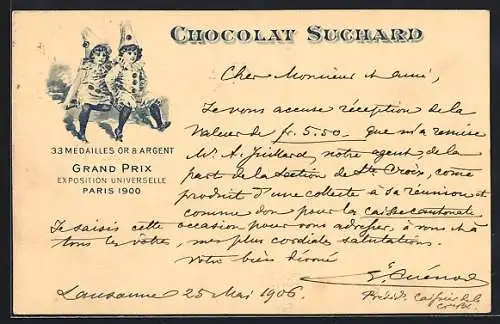 CHOCOLAT SUCHARD
33 MEDAILLES OR & ARGENT
GRAND PRIX
EXPOSITION UNIVERSELLE
PARIS 1900
Cher Monsieur et ami,
Je vous accuse réception de la
valeur de fr. 5.50 que m'a remise
Mr. A. Juillard, notre agent, de la
part de la Section de Ste Croix, comme
produit d'une collecte à sa réunion et
comme don pour la caisse cantonale
Je saisis cette occasion pour vous adresser, à vous et à
tous les vôtres, mes plus cordiales salutations.
Votre bien dévoué
Lausanne 25 Mai 1906.
Présidt. Caissier de la